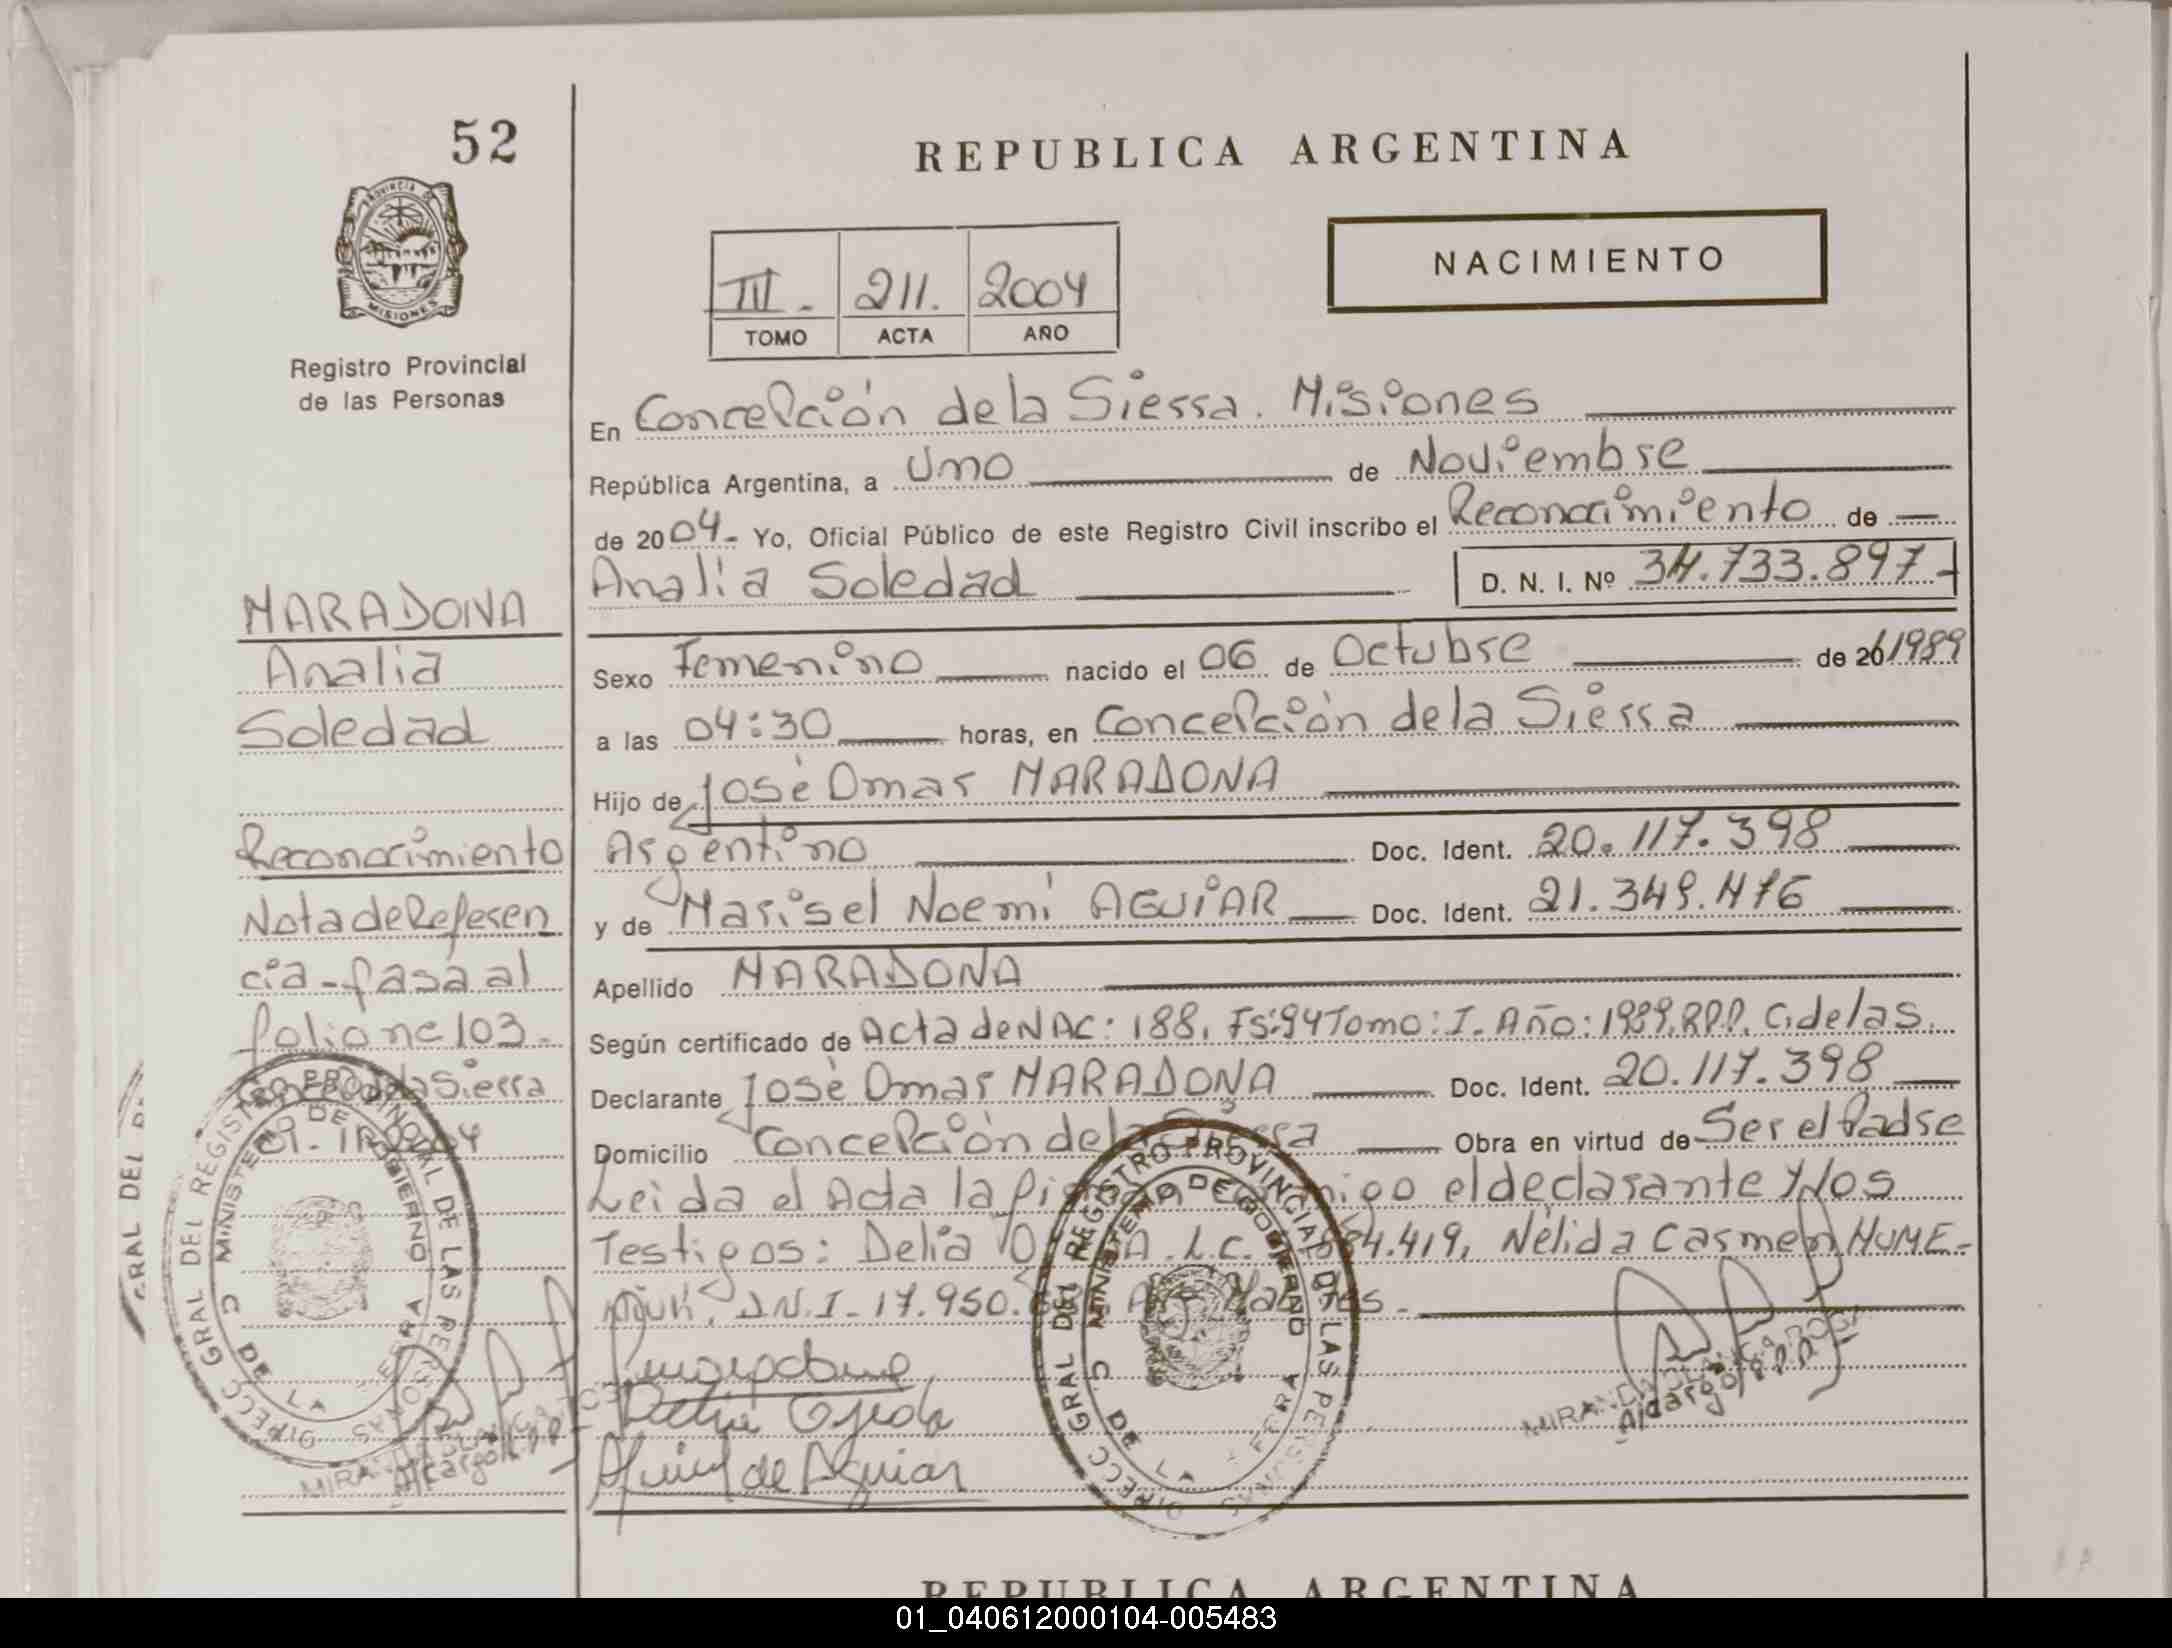 52
REPUBLICA ARGENTINA
PROVINCIA DE
MISIONES
NACIMIENTO
III. 211. 2004
TOMO ACTA AÑO
Registro Provincial
de las Personas
En Concepción de la Sierra. Misiones
República Argentina, a Uno de Noviembre
de 2004- Yo, Oficial Público de este Registro Civil inscribo el Reconocimiento de
Analia Soledad D. N. I. Nº 34.733.897-
Sexo Femenino nacido el 06 de Octubre de 20/1989
a las 04:30 horas, en Concepción de la Sierra
Hijo de José Omar MARADONA
Argentino Doc. Ident. 20.117.398
y de Marisel Noemí AGUIAR Doc. Ident. 21.349.476
Apellido MARADONA
Según certificado de Acta de NAC: 188. Fs:94 Tomo: I. Año: 1989. RPP. C. de la S.
Declarante José Omar MARADONA Doc. Ident. 20.117.398
Domicilio Concepción de la Sierra Obra en virtud de Ser el Padre
Leida el Acta la firman conmigo el declarante y los
Testigos: Delia L.C. 419, Nélida Carmen HUME-
ÑUK, D.N.I- 17.950.
Delia Ojeda
de Aguiar
MARADONA
Analia
Soledad
Reconocimiento
Nota de Referen
cia - Pasa al
folio nº 103.
de la Sierra
DIRECC GRAL DEL REGISTRO PROVINCIAL DE LAS PERSONAS
MINISTERIO DE GOBIERNO
C DE LA
A/cargo R.P.P.
GRAL DEL
DIRECC GRAL DEL REGISTRO PROVINCIAL DE LAS PERSONAS
MINISTERIO DE GOBIERNO
C DE LA
A/cargo R.P.P.
REPUBLICA ARGENTINA
01_040612000104-005483